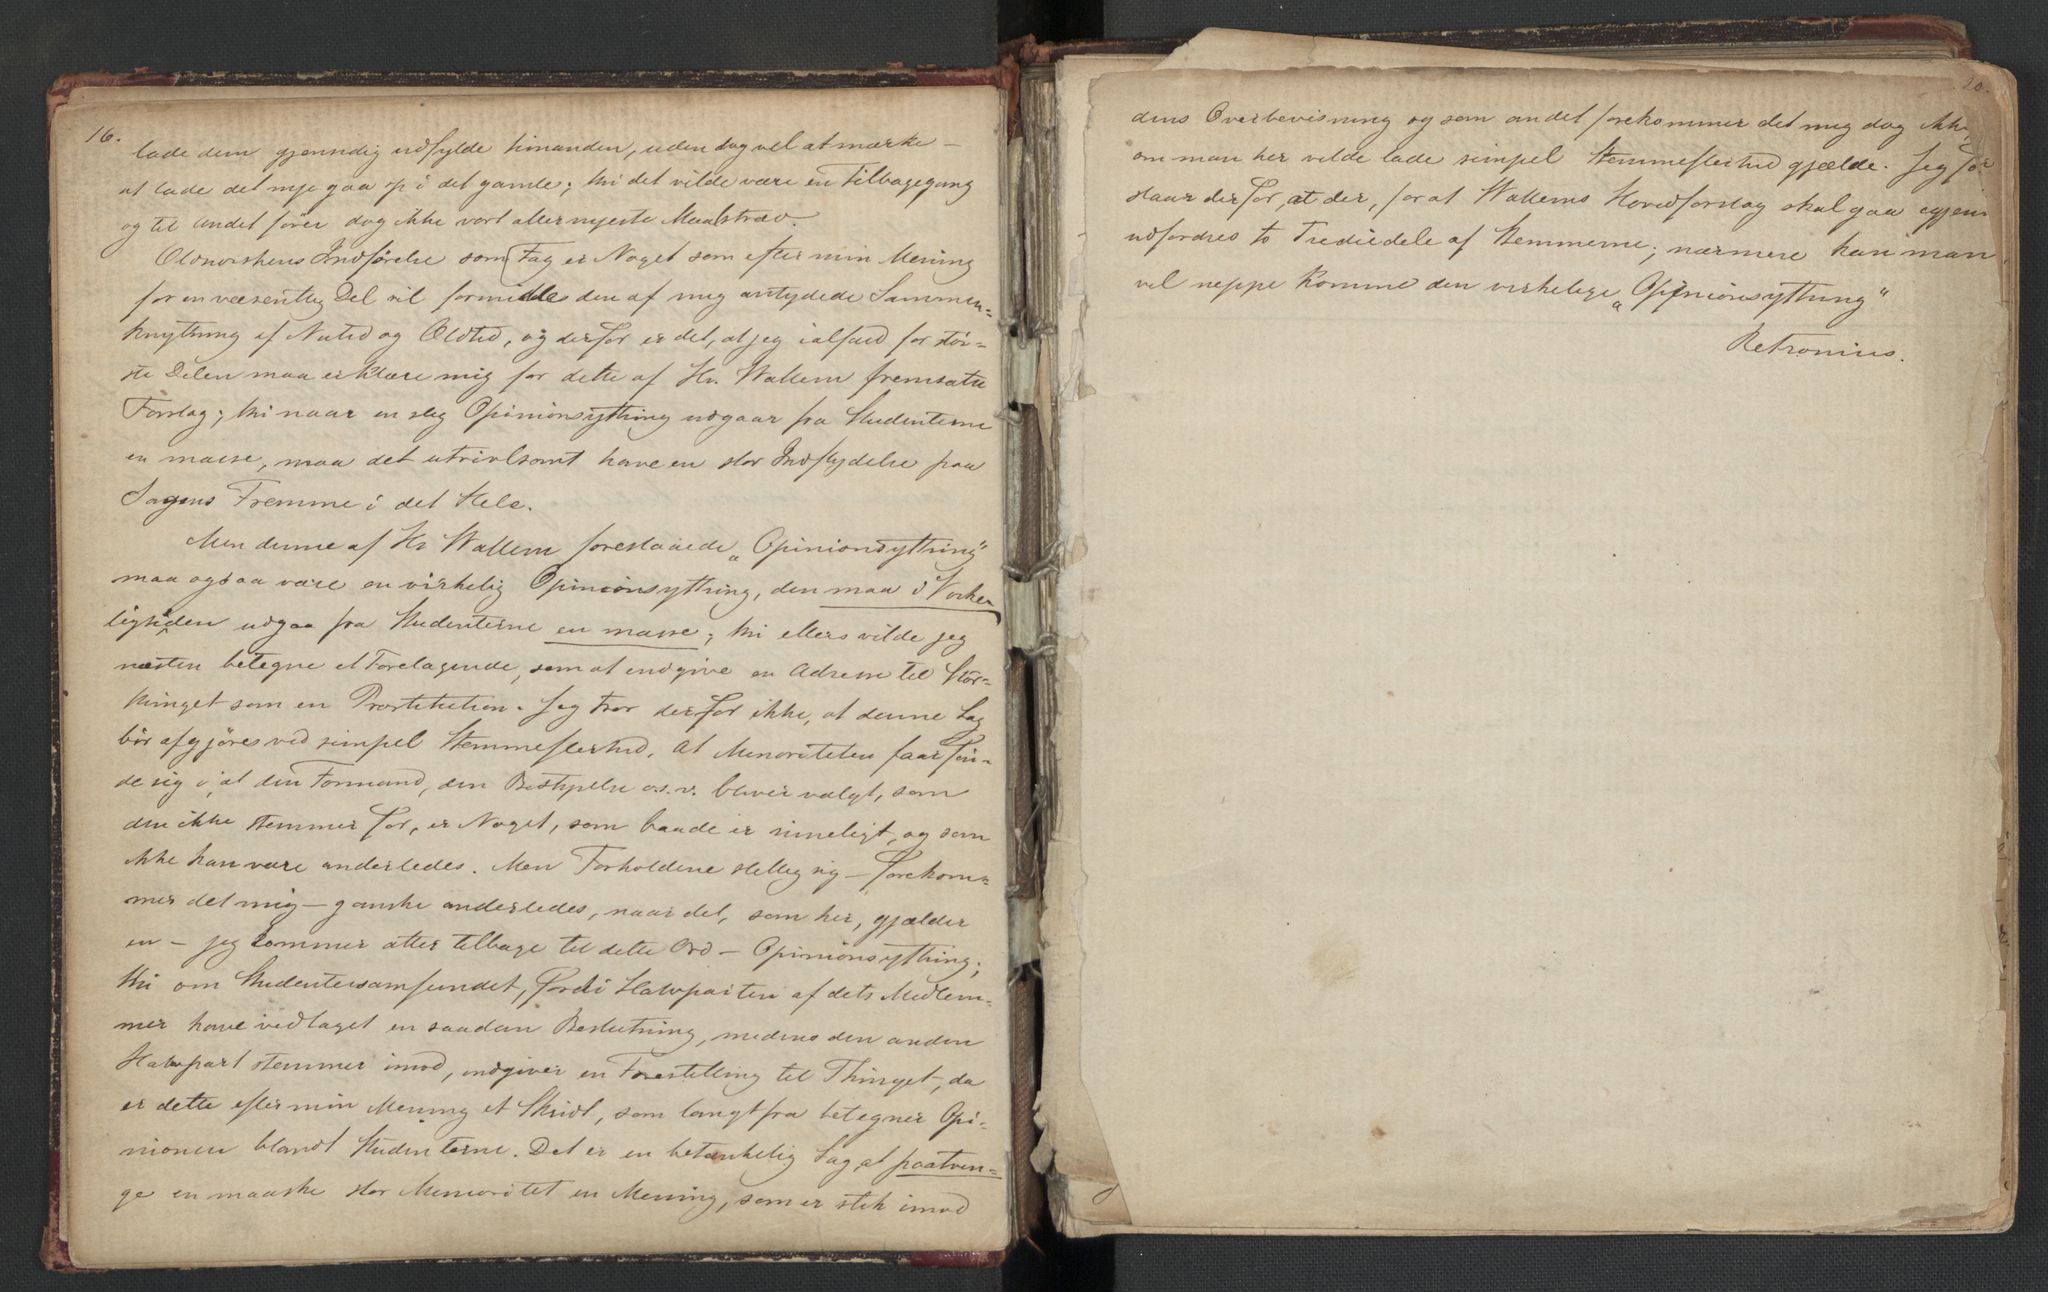 16.
lade dem gjensidig udfylde hinanden, uden dog vel at mærke –
at lade det nye gaa op i det gamle; thi det vilde være en Tilbagegang
og til andet fører dog ikke vort allernyeste Maalstræv.
Oldnorskens Indførelse som Fag er Noget som efter min Mening
for en væsentlig Del vil formidle den af mig antydede Sammen-
knytning af Nutid og Oldtid, og derfor er det, at jeg ialfald for stør-
ste Delen maa erklære mig for dette af Hr. Wallem fremsatte
Forslag; thi naar en slig Opinionsytring udgaar fra Studenterne
en masse, maa det utvivlsomt have en stor Indflydelse paa
Sagens Fremme i det Hele.
Men denne af Hr Wallem foreslaaede „Opinionsytring“
maa ogsaa være en virkelig Opinionsytring, den maa i Virke-
ligheden udgaa fra Studenterne en masse; thi ellers vilde jeg
næsten betegne et Foretagende, som at indgive en Adresse til Stor-
thinget som en Prostitution. Jeg tror derfor ikke, at denne Sag
bør afgjöres ved simpel Stemmeflerhed. At Minoriteten faar fin-
de sig i, at den Formand, den Bestyrelse o.s.v. bliver valgt, som
den ikke stemmer for, er Noget, som baade er rimeligt, og som
ikke kan være anderledes. Men Forholdene stiller sig – forekom-
mer det mig – ganske anderledes, naar det, som her, gjælder
en – jeg kommer atter tilbage til dette Ord – Opinionsytring;
thi om Studentersamfundet, fordi Halvparten af dets Medlem-
mer have vedtaget en saadan Beslutning, medens den anden
Halvpart stemmer imod, indgiver en Forestilling til Thinget, da
er dette efter min Mening et Skridt, som langt fra betegner Opi-
nionen blandt Studenterne. Det er en betænkelig Sag, at paatvin-
ge en maaske stor Minoritet en Mening, som er stik imod
20.
dens Overbevisning og som andet forekommer det mig dog ikke,
om man her vilde lade simpel Stemmeflerhed gjælde. Jeg fore-
slaar derfor, at der, for at Wallems Hovedforslag skal gaa igjen
udfordres to Trediedele af Stemmerne; nærmere kan man
vel neppe komme den virkelige „Opinionsytring“
Petronius.